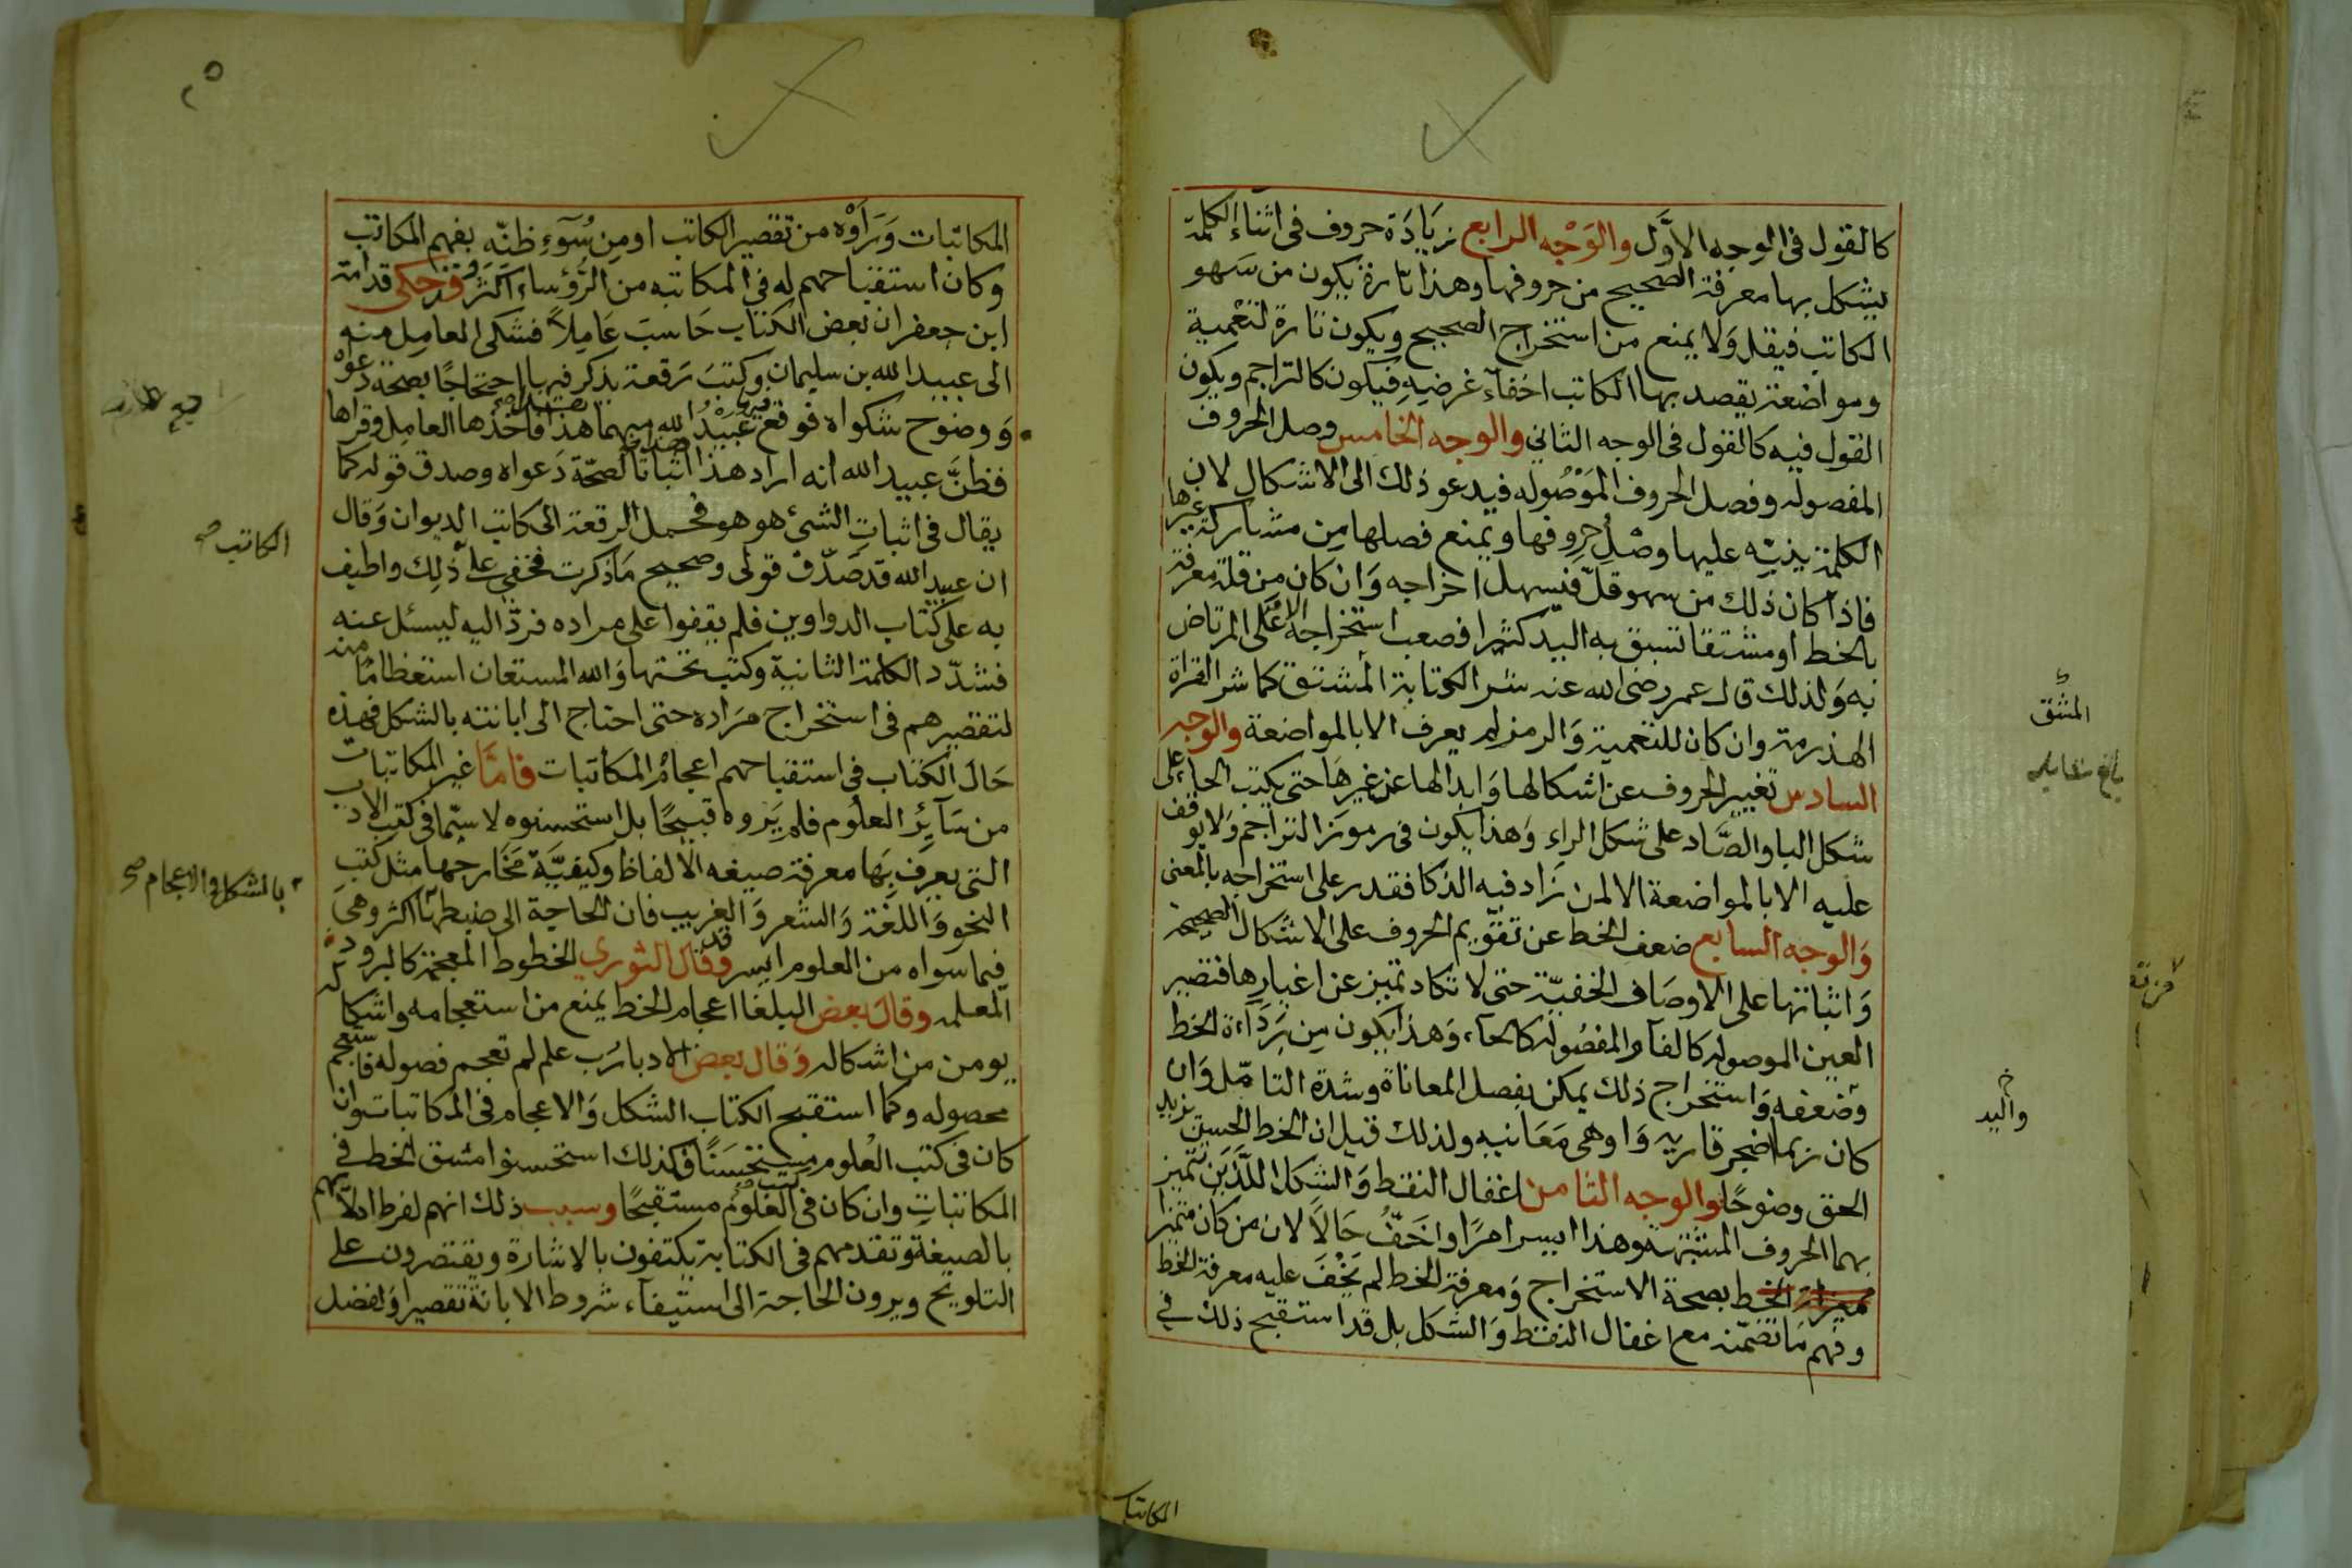 كالقول فى الوجه الاوَّل والوَجْه الرابع زيَادَة حروف فى اثناء الكلمة
يشكل بها معرفة الصحيح من حروفها وهذا تارة يكون من سهو
الكاتب فيقل وَلا يمنع من استخراج الصحيح ويكون تارة لتعْمية
ومواضعة يقصد بها الكاتب اخفآء غرضه فيكون كالتراجم ويكون
القول فيه كالقول فى الوجه الثانى والوجه الخامس وصل الحروف
المفصوله وفصل الحروف المَوْصُوله فيدعو ذلك الى الاشكال لان
الكلمة ينبّه عليها وصْل حروفها ويمنع فصلها من مشاركة غيرها
فاذا كان ذلك من سهو قلّ فيسهل اخراجه وَان كان من قلة معرفة
بالخط او مشقا تسبق به اليد كثيرا فصعب استخراجه الا على المرتاض
به وَلذلك قال عمر رضى الله عنه شر الكتابة المشق كما شر القراة
الهذرمة وان كان للتعمية وَالرمز لم يعرف الا بالمواضعة والوجه
السادس تغيير الحروف عن اشكالها وَابدالها عن غيرهَا حتى يكتب الحا على
شكل البا والصَّاد على شكل الراء وَهذا يكون فى رموز التراجم وَلا يوقف
عليه الا بالمواضعة الا لمن زَاد فيه الذكا فقدر على استخراجه بالمعنى
وَالوجه السابع ضعف الخط عن تقويم الحروف على الاشكال الصحيحة
وَاثباتها على الاوصَاف الخفيّة حتى لا تكاد تميز عن اغيارها فتصير
العين الموصوله كالفآء والمفصُوله كالحآء، وَهذا يكون من رَدَاءة الخط
وضعفه وَاستخراج ذلك يمكن بفصل المعاناة وشدة التامّل وَان
كان ربما اضجر قاريه وَاوهى مَعَانيه ولذلك قيل ان الخط الحسن يزيد
الحق وضوحًا والوجه الثامن اغفال النقط وَالشكل اللّذَين تتميز
بهما الحروف المشتبهة وهذا ايسر امرًا واخَفّ حَالًا لان من كان متميزا
بصحة الاستخراج وَمعرفة الخط لم يَخْفَ عليه معرفة الخط
وفهم مَا تضمّنه مع اغفال النقط وَالشكل بل قد استقبح ذلك فى
المشق
واليد
المكاتبات
المكاتبات وَرَاَوْه من تقصير الكاتب او مِن سُوٓءِ ظنّه بفهم المكاتب
وكان استقباحهم له فى المكاتبه من الرُّؤساء اكثر وقد حكى قدامة
ابن جعفر ان بعض الكتاب حَاسبَ عَامِلًا فشكى العامِل منه
الى عبيد الله بن سليمان وكتبَ رَقعة يذكر فيها احتجاجًا بصحة دعواه
وَوضوح شكواه فوقع فيها عُبَيْدُ الله بينهما هذا هذا فاخذها العامِل وقراها
فظنَّ عبيد الله انه اراد هذا اثباتا لصحّة دَعواه وصدق قوله كما
يقال فى اثبات الشئ هو هو فحمل الرقعة الى كاتب الديوان وَقال
ان عبيد الله قد صَدّق قولى وصحيح مَا ذكرت فخفى على ذلِك واطيف
به على كتّاب الدواوين فلم يقفوا على مراده فردّ اليه ليسئل عنه
فشدّد الكلمة الثانية وكتب تحتها وَالله المستعان استعظاما منه
لتقصيرهم فى استخراج مرَاده حتى احتاج الى ابانته بالشكل فهذه
حَال الكتاب فى استقباحهم اعجام المكاتبات فامَّا غير المكاتبات
من سَآئر العلُوم فلم يَرَوه قبيحًا بل استحسنوه لا سيّما فى كتب الادب
التى يعرف بَها معرفة صيغه الالفاظ وكيفيّة مَخَارجها مثل كتب
النحو وَاللّغة وَالشعر وَالغريب فان الحاجة الى ضبطها اكثر وهىَ
فيما سواه من العلوم ايسر وقد قال الثورى الخطوط المعجمة كالبرود
المعلمه وقال بعض البلغا اعجام الخط يمنع من استعجامه واشكاله
يومن من اشكاله وَقال بعض الادبا رُب علم لم تعجم فصوله فاستعجم
محصوله وكما استقبح الكتاب الشكل وَالاعجام فى المكاتبات وان
كان فى كتب العُلوم مستحسنًا فكذلك استحسنوا مشق الخط فى
المكاتبات وان كان فى كتب العلوم مستقبحًا وسبب ذلك انهم لفرط ادلالهم
بالصيغة وتقدمهم فى الكتابة يكتفون بالاشارة ويقتصرون على
التلويح ويرون الحاجة الى استيفآء شروط الابانة تقصيرا وَلفضل
الكاتب صح
بالشكل والاعجام صح